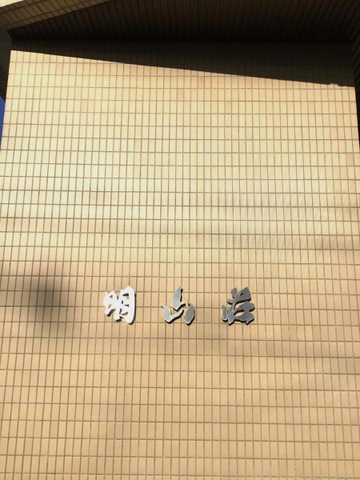 明山荘